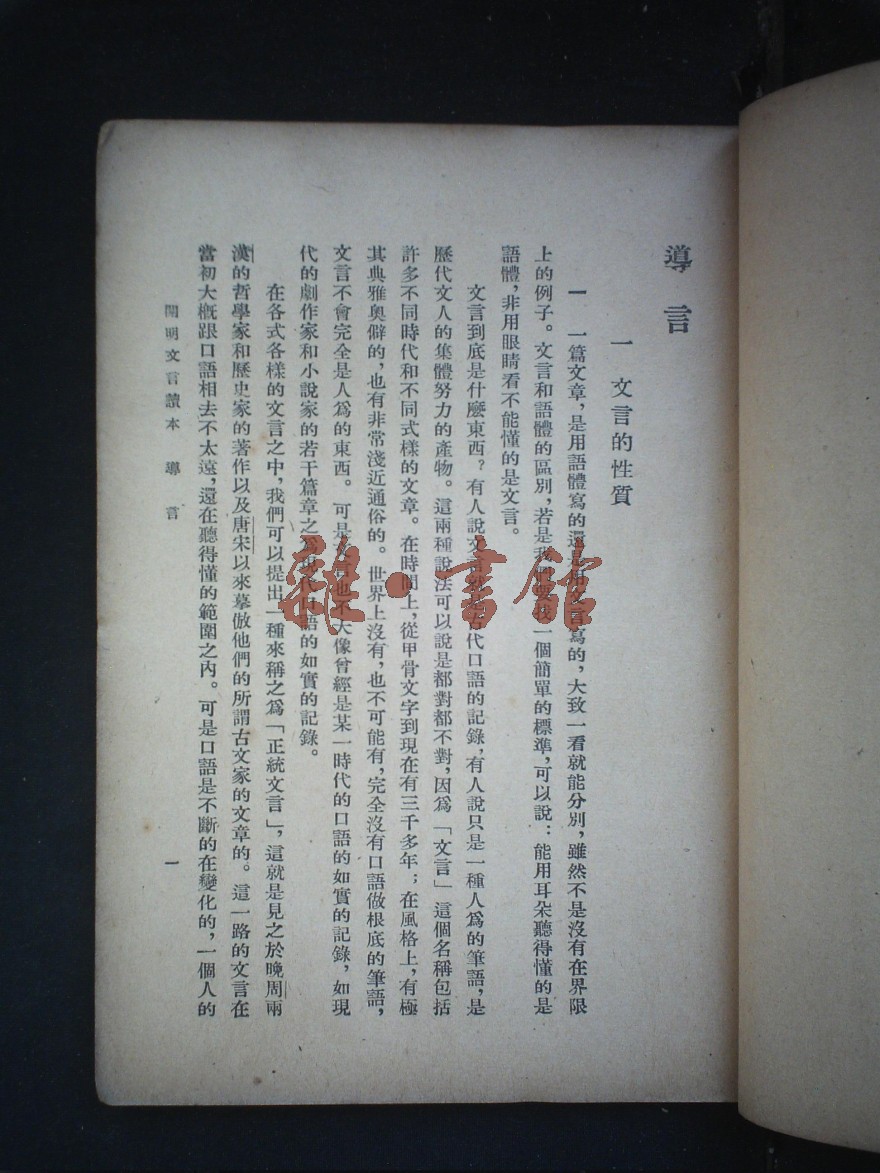 導言
一 文言的性質
一 一篇文章,是用語體寫的還是用文言寫的,大致一看就能分別,雖然不是沒有在界限
上的例子。文言和語體的區別,若是我們要找一個簡單的標準,可以說:能用耳朵聽得懂的是
語體,非用眼睛看不能懂的是文言。
文言到底是什麽東西?有人說文言就是古代口語的記錄,有人說只是一種人爲的筆語,是
歷代文人的集體努力的產物。這兩種說法可以說是都對都不對,因爲「文言」這個名稱包括
許多不同時代和不同式樣的文章。在時間上,從甲骨文字到現在有三千多年;在風格上,有極
其典雅奧僻的,也有非常淺近通俗的。世界上沒有,也不可能有,完全沒有口語做根底的筆語,
文言不會完全是人爲的東西。可是文言也不大像曾經是某一時代的口語的如實的記錄,如現
代的劇作家和小說家的若干篇章之爲現代口語的如實的記錄。
在各式各樣的文言之中,我們可以提出一種來稱之爲「正統文言」,這就是見之於晚周兩
漢的哲學家和歷史家的著作以及唐宋以來摹倣他們的所謂古文家的文章的。這一路的文言在
當初大概跟口語相去不太遠,還在聽得懂的範圍之內。可是口語是不斷的在變化的,一個人的
開明文言讀本 導言
一
雜·書館